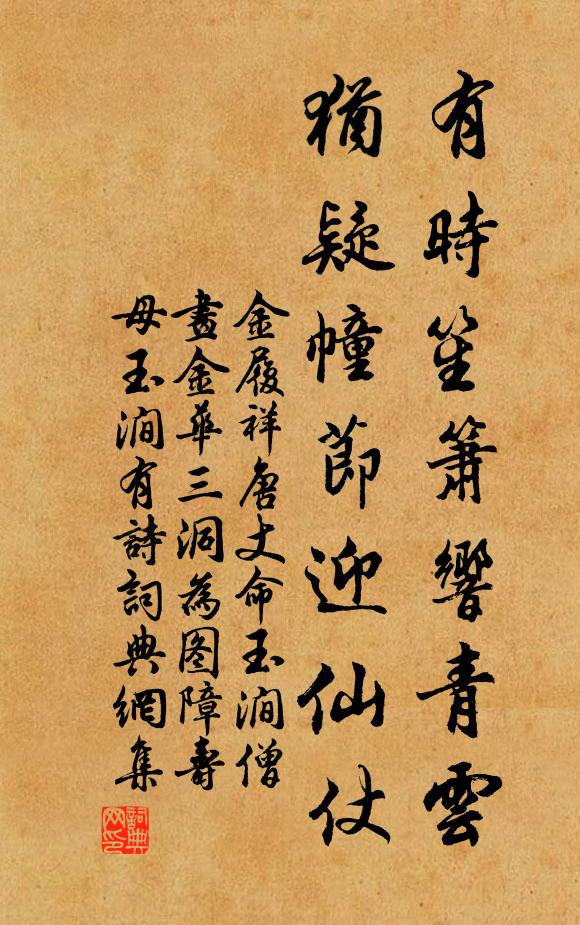 有時笙簫響青雲
猶疑幢節迎仙仗
金履祥唐丈命玉澗僧
畫金華三洞為图障壽
母玉澗有詩詞典網集
詞典网印